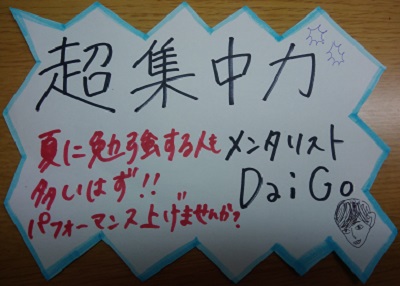 超集中力
夏に勉強する人も
多いはず!!
パフォーマンス上げませんか?
メンタリスト
DaiGo